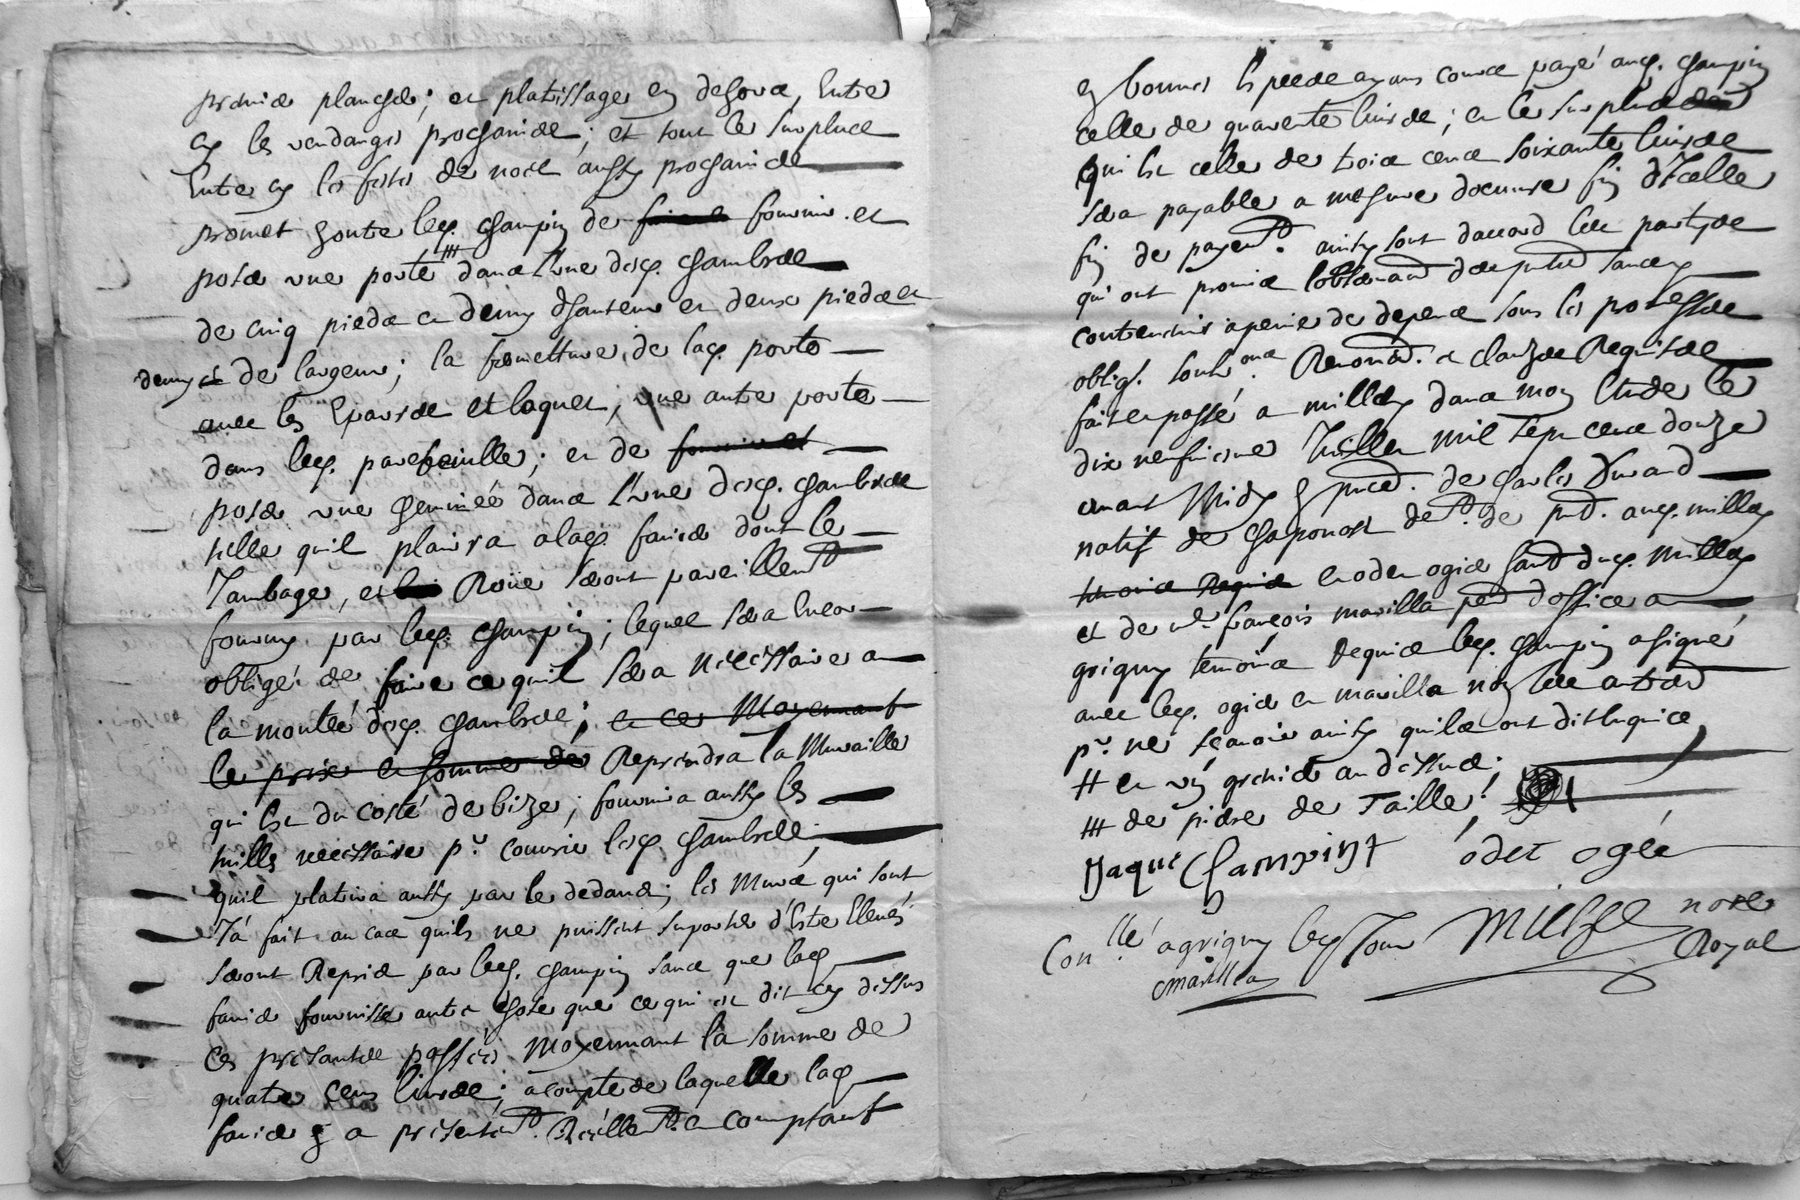 planches; et platissage en dehors, Entre
cy les vendanges prochaines; et tout le surplus
Entre cy les festes de noel aussy prochaines
promet outre led. champin de faire fournir et
poser une porte ## dans l'une desd. chambres
de cinq pieds et demy dhauteur et deux pieds et
demy de largeur; la fermetture de lad. porte
avec les Eparres et loquet, une autre porte
dans led. ; et de fournir et
poser une cheminée dans l'une desd. chambres
telle quil plaira a lad. faure dont le
Jambage, et les seront pareillemt
fourny par led. champin; lequel sera Encor
obligé de faire ce quil sera nécéssaire a
la montée desd. chambres; et ce Moyennant
le prix et somme de Reprendra la Muraille
qui Est du costé de bize; fournira aussy les
tuilles necessaire pr. couvrir lesd. chambres,
quil platrira aussy par le dedans; les Murs qui sont
Ja fait au cas quils ne puissent suporter d'Estre Elevés
seront Repris par led. champin sans que lad.
fournisse autre chose que ce qui est dit cy dessus
Ces présantes passées Moyennant la somme de
quatre cens livres; acompte de laquelle lad.
a présentemt. Réellemt. et comptant
en bonnes Espece ayans cours payé aud. champin
celle de quarente livres; et le surplus
qui Est celle de trois cens soixante livres
sera payable a mesure dœuvre fin d'Icelle
fin de payemt. ainsy sont daccord les partyes
qui ont promis lobserver
contrevenir apeine de depens sous les
oblig. Renond. et clauzes Requises
fait et passé a millery dans mon Etude le
dix neufvieme Juillet mil sept cens douze
avant Midy en prnce. de charles Durand
natif de chaponost demt. de pnt. aud. millery
temoins Requis et odet ogier dud. millery
et de me. françois marilla d'office a
grigny temoins Requis led. champin a signé
avec led. ogier et marilla non les autres
pr. ne sçavoir ainsy quils ont dit Enquis
# et un au dessus.
## de piere de Taille!
Jaque Champint odet ogié
Conllé a grigny led. Jour nore
marilla Royal